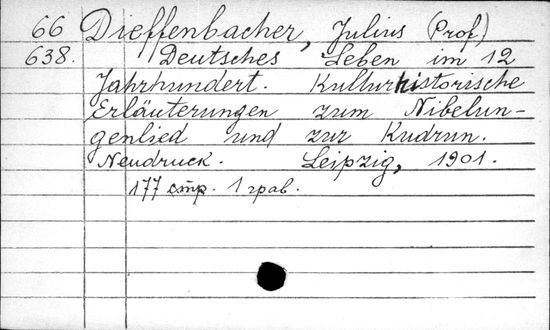 66 Dieffenbacher, Julius (Prof)
638. Deutsches Leben im 12
Jahrhundert. Kulturhistorische
Erläuterungen zum Nibelun-
genlied und zur Kudrun.
Neudruck. Leipzig, 1901.
177 стр. 1 грав.